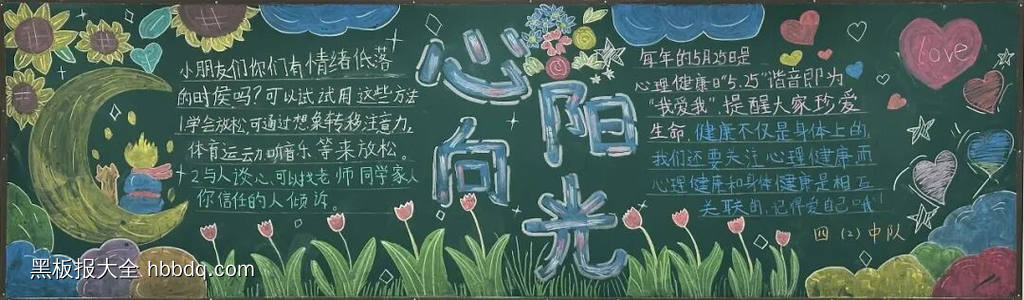 小朋友们你们有情绪低落
的时候吗？可以试试用这些方法
1学会放松，可通过想象转移注意力，
体育运动听音乐等来放松。
2与人谈心，可以找老师同学家人
你信任的人倾诉。
心向
阳光
每年的5月25日是
心理健康日“5.25”谐音即为
“我爱我”，提醒大家珍爱
生命，健康不仅是身体上的，
我们还要关注心理健康而
心理健康和身体健康是相互
关联的，记得爱自己哦！
四（2）中队
Love
黑板报大全 hbbdq.com